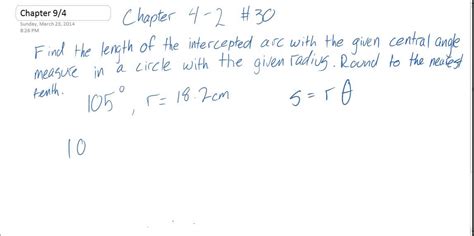 Chapter 9/4
Sunday, March 23, 2014
8:28 PM
Chapter 4-2 #30
Find the length of the intercepted arc with the given central angle
measure in a circle with the given radius. Round to the nearest
tenth.
105°, r = 18.2cm s = r θ
10